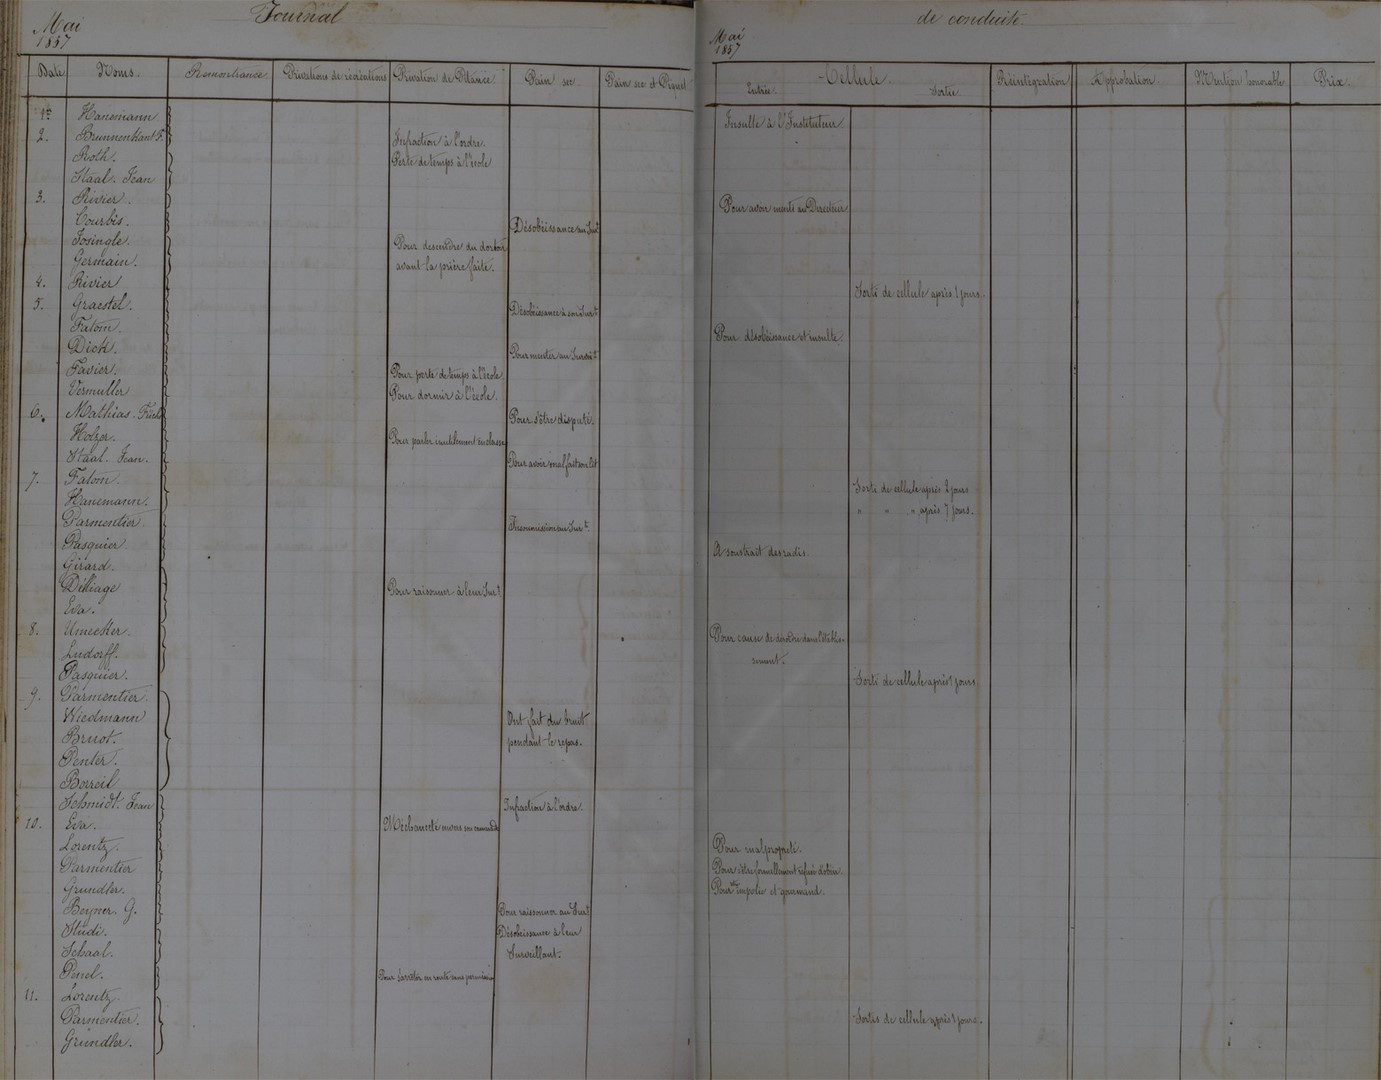 Journal
de conduite
Mai
1857
Mai
1857
Date Noms. Remontrance Privations de récréations Privation de Pitance Pain sec Pain sec et Piquet Cellule Réintégration Approbation Mention honorable Prix
Entrée Sortie
1er Hanemann Insulte à l'Instituteur
2. Brunnenkant F. Infraction à l'ordre.
Roth. Perte de temps à l'école
Staal. Jean
3. Rivier. Pour avoir menti au Directeur
Courbis. Désobéissance au Survt
Josingle. Pour descendre du dortoir
Germain. avant la prière faite.
4. Rivier Sorti de cellule après 1 jours
5. Graestel. Désobéissance à son Survt
Fatom. Pour désobéissance et insulte.
Dick. Pour mentir au Survt
Favier. Pour perte de temps à l'école
Vermuller Pour dormir à l'école.
6. Mathias. Pour s'être disputé.
Holzer. Pour parler inutilement en classe
Staal. Jean. Pour avoir mal fait son lit
7. Fatom. Sorti de cellule après 2 jours
Hanemann. " " " après 7 jours.
Parmentier Insoumission au Survt
Pasquier. A soustrait des radis.
Girard.
Délliage Pour raisonner à leur Survt
Eva.
8. Umecker. Pour cause de désordre dans l'établis-
Ludorff. sement.
Pasquier. Sorti de cellule après 1 jours
9. Parmentier.
Wiedmann Ont fait du bruit
Bruot. pendant le repas.
Penter.
Borreil
Schmidt. Jean Infraction à l'ordre.
10. Eva. Méchanceté envers son camarade
Lorentz. Pour malpropreté.
Parmentier Pour être formellement refusé d'obéir
Grundler. Pour être impolie et gourmand.
Beyner. G. Pour raisonner au Survt
Studi. Désobéissance à leur
Schaal. Surveillant.
Penel. Pour s'arrêter en route sans permission
11. Lorentz
Parmentier. Sortis de cellule après 1 jours.
Grundler.